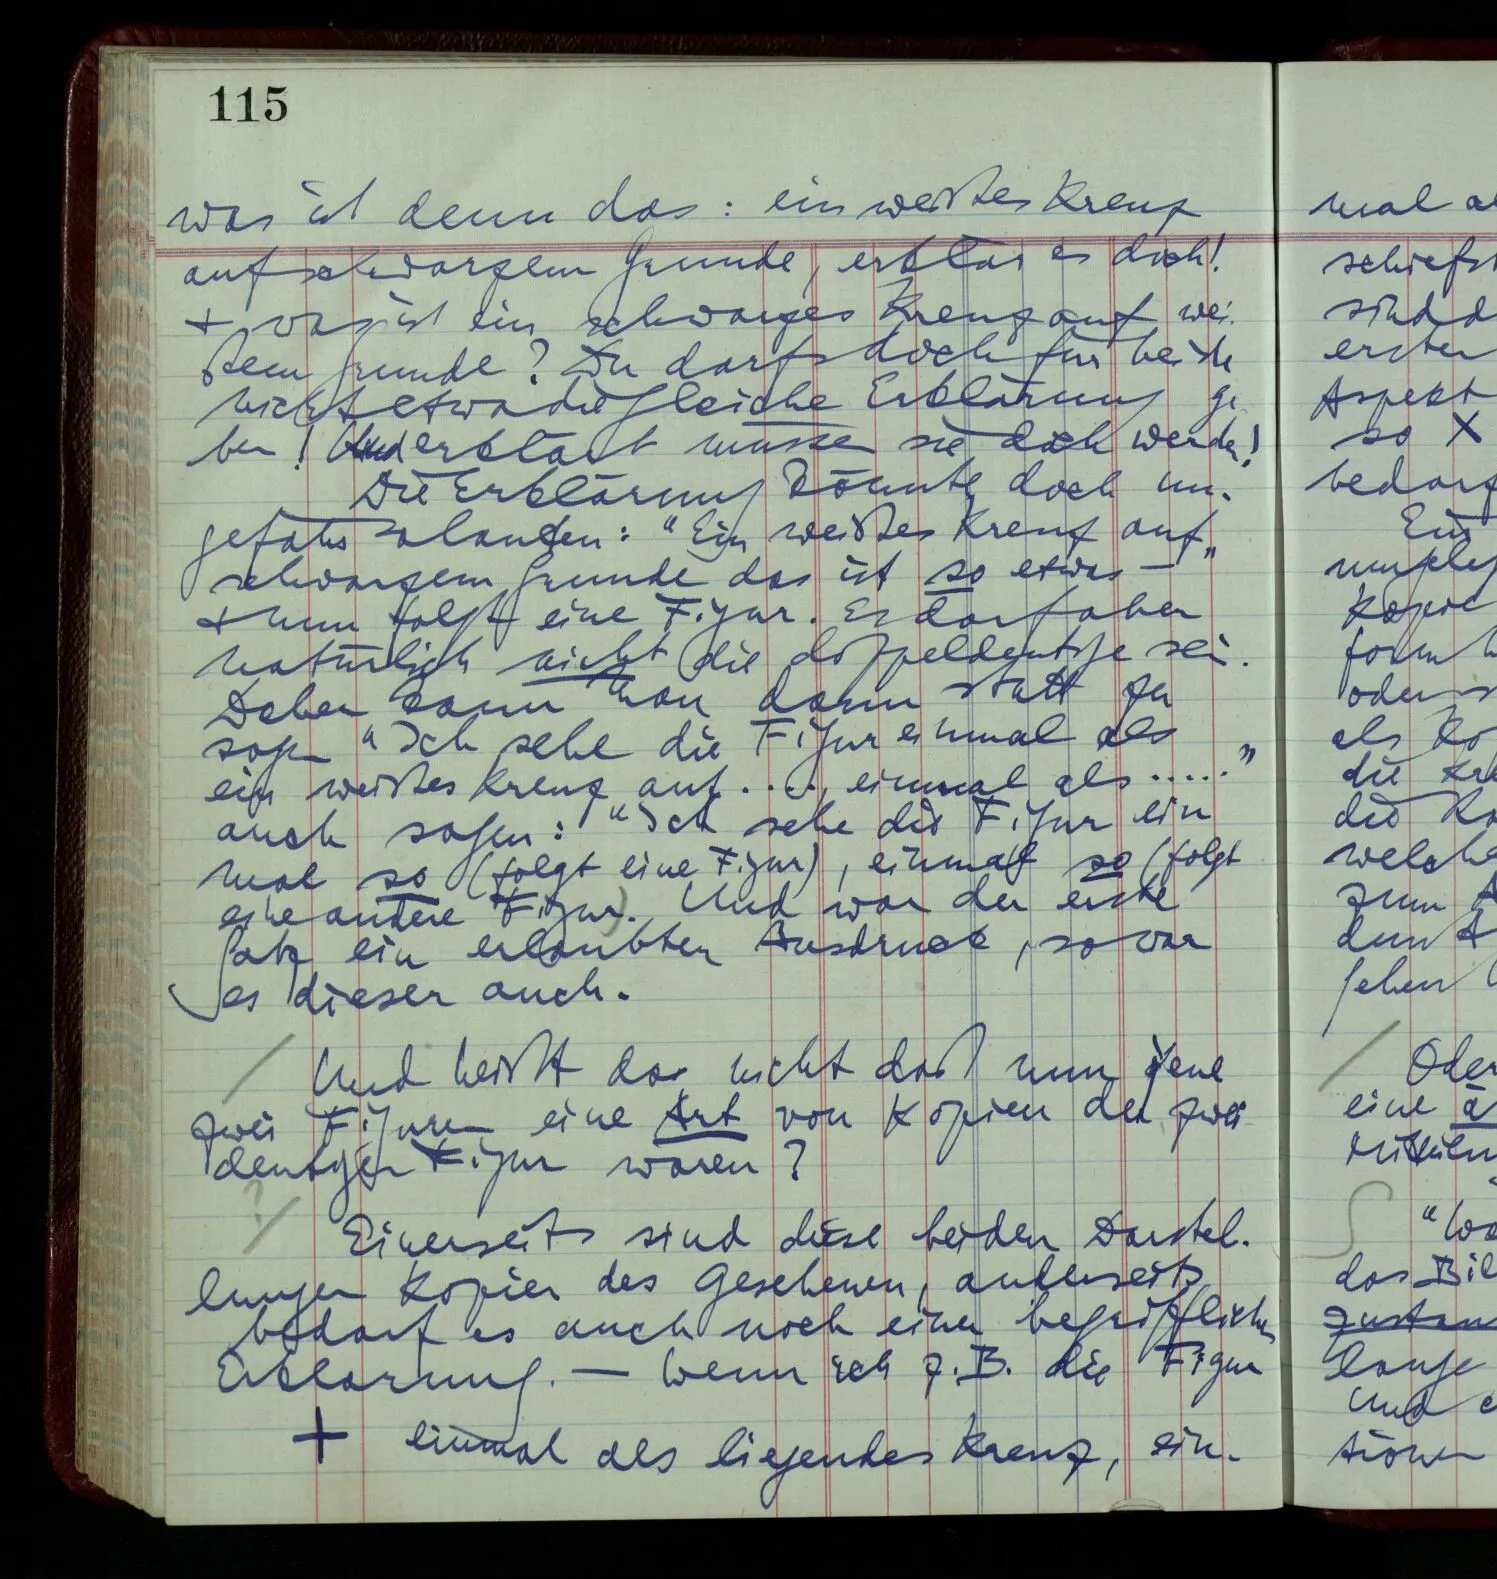 115
was ist denn das: ein weißes Kreuz
auf schwarzem Grunde, erklär es doch!
+ was ist ein schwarzes Kreuz auf wei-
ßem Grunde? Du darfst doch für beide
nicht etwa die gleiche Erklärung ge-
ben! Und erklärt müssen sie doch werden!
Die Erklärung könnte doch un-
gefähr so lauten: "Ein weißes Kreuz auf
schwarzem Grunde das ist so etwas —"
+ nun folgt eine Figur. Es darf aber
natürlich nicht die doppeldeutige sein.
Daher kann man dann statt zu
sagen "Ich sehe die Figur einmal als
ein weißes Kreuz auf...., einmal als ....."
auch sagen: "Ich sehe die Figur ein
mal so (folgt eine Figur), einmal so (folgt
eine andere Figur). Und war der erste
Satz ein erlaubter Ausdruck, so war
es dieser auch.
/ Und heißt das nicht daß nun jene
zwei Figuren eine Art von Kopien der zwei-
deutigen Figur waren?
?/ Einerseits sind diese beiden Darstel-
lungen Kopien des Gesehenen, anderseits
bedarf es auch noch einer begrifflichen
Erklärung. — Wenn ich z.B. die Figur
+ einmal als liegendes Kreuz, ein-
mal
schiefst
sind d
ersten
Aspekt
so X
bedarf
Kopie
oder
als Ko
die
die Ko
welche
zum A
dem A
geben
/ Oder
eine
"Wo
das Bil
lange
Und